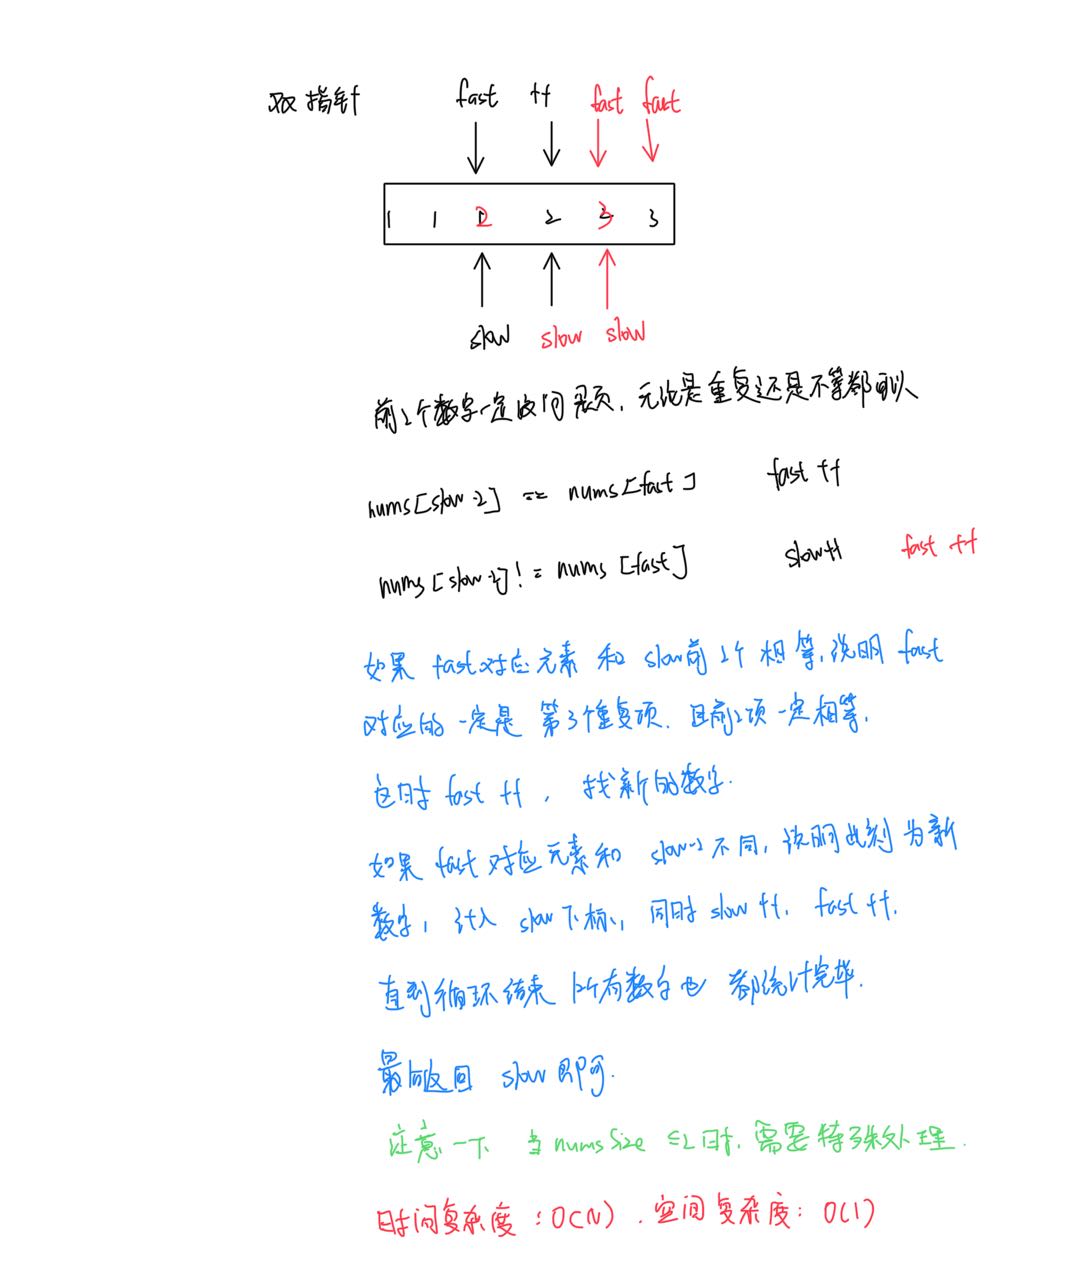 双指针 fast ++ fast fast
1 1 2 2 3 3
slow slow slow
前2个数字一定没问题，无论是重复还是不等都可以
nums[slow-2] == nums[fast] fast ++
nums[slow-2] != nums[fast] slow++ fast ++
如果 fast对应元素 和 slow前2个 相等，说明 fast
对应的一定是 第3个重复项，且前2项一定相等，
这时 fast ++ ，找新的数字.
如果 fast 对应元素和 slow-2 不同，说明此刻为新
数字，计入 slow下标，同时 slow ++，fast ++.
直到循环结束 所有数字也 都统计完毕.
最后返回 slow即可.
注意一下 当 numsSize ≤2时，需要特殊处理.
时间复杂度：O(N)，空间复杂度：O(1)